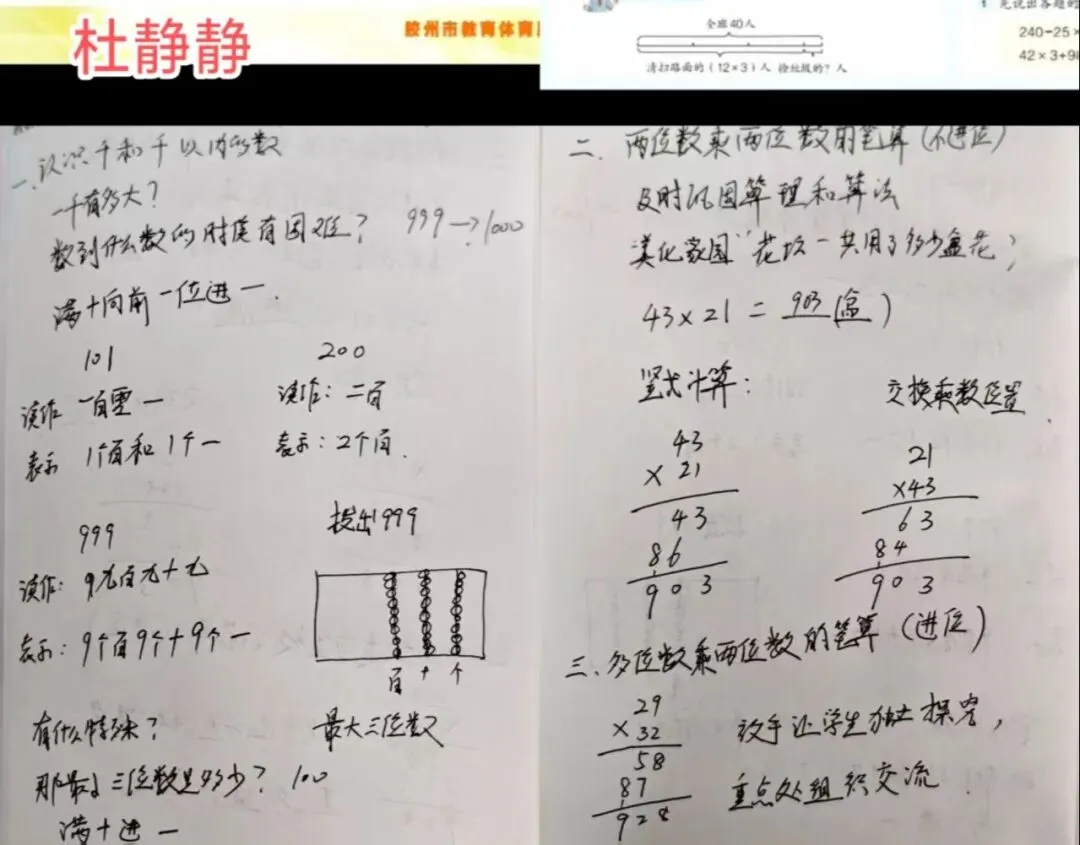 杜静静
胶州市教育体育
全班40人
清扫路面的(12×3)人 捡垃圾的?人
1 先说出各题的
240-25×
42×3+9
一、认识千和千以内的数
一千有多大?
数到什么数的时候有困难? 999→1000
满十向前一位进一.
101
200
读作 一百零一
读作:二百
表示 1个百和1个一
表示:2个百.
999
拨出999
读作:9九百九十九
表示:9个百9个十9个一
百 十 个
有什么特殊?
最大三位数
那最小三位数是多少? 100
满十进一
二、两位数乘两位数的笔算(不进位)
及时巩固算理和算法
美化家园"花坛一共用了多少盆花?
43×21=903(盆)
竖式计算:
交换乘数位置
43
×21
43
86
903
21
×43
63
84
903
三、多位数乘两位数的笔算(进位)
29
×32
58
87
928
放手让学生独立探究,
重点处组织交流.